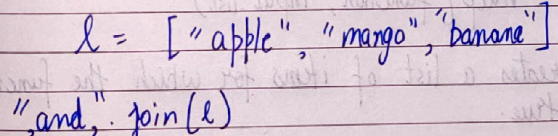 l = ["apple", "mango", "banana"]
",and,". join(l)